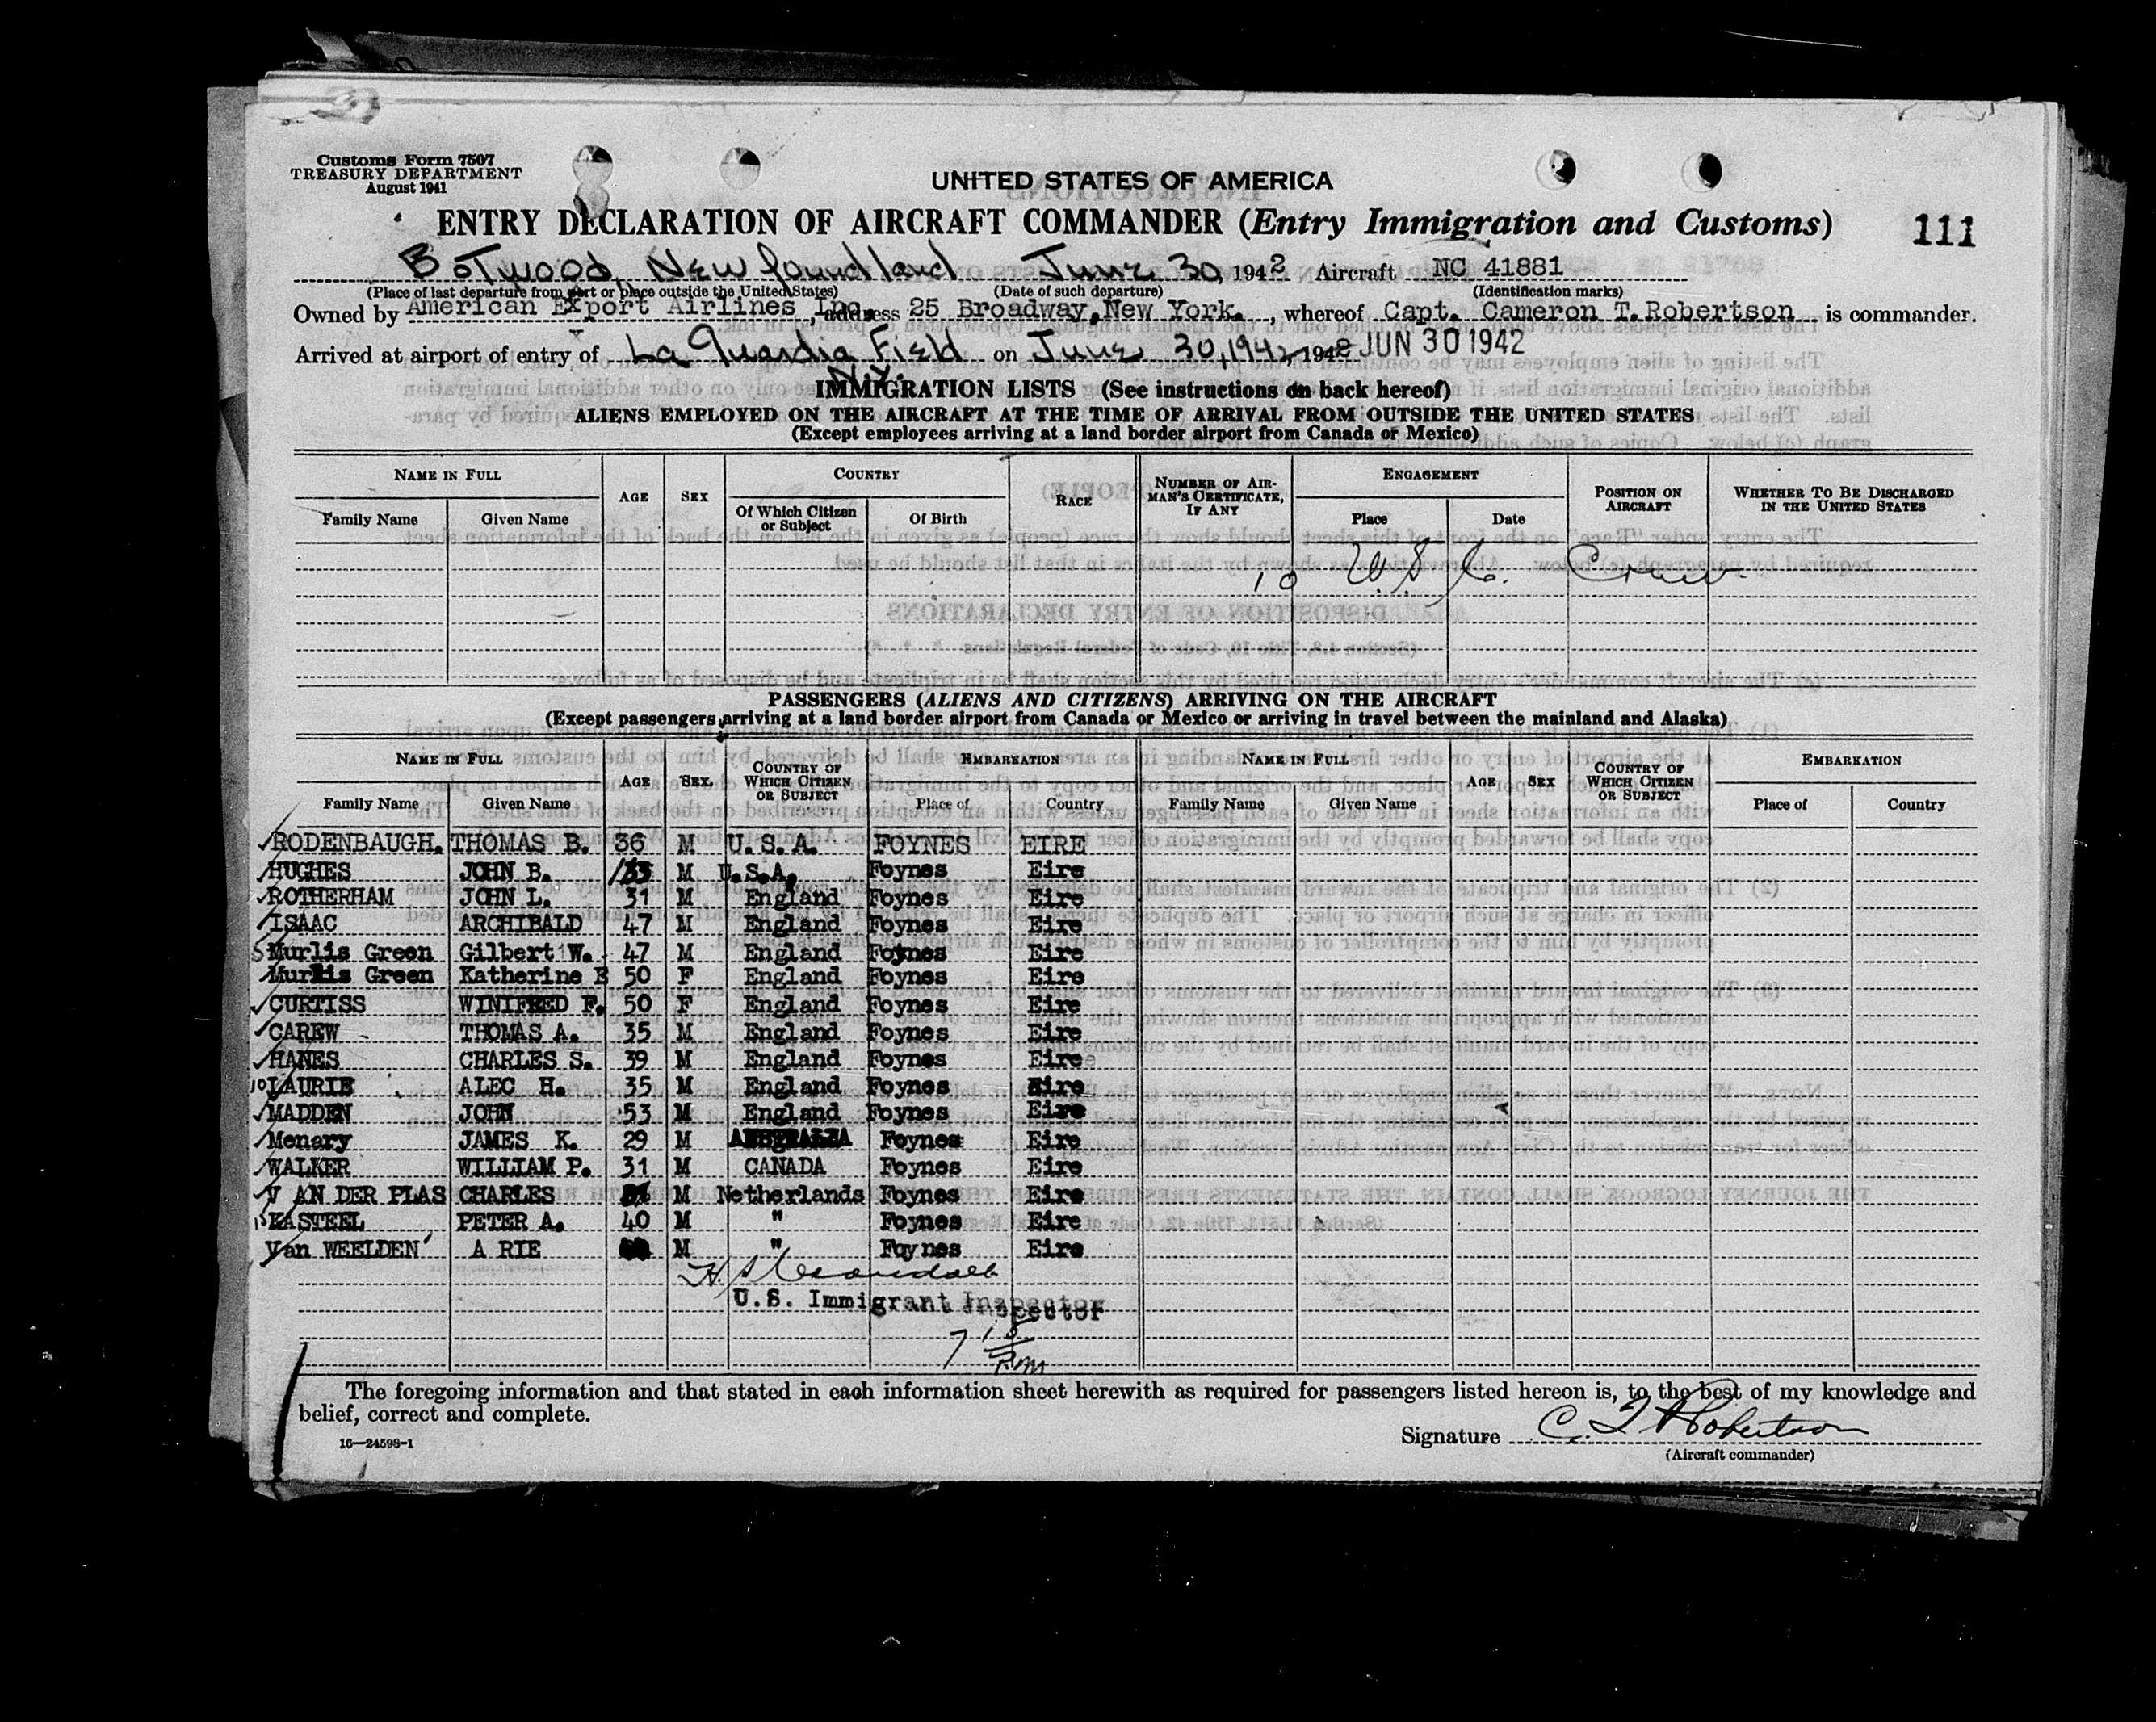 Customs Form 7507
TREASURY DEPARTMENT
August 1941
UNITED STATES OF AMERICA
ENTRY DECLARATION OF AIRCRAFT COMMANDER (Entry Immigration and Customs)
111
Botwood, Newfoundland June 30, 1942 Aircraft NC 41881
(Place of last departure from port or place outside the United States) (Date of such departure) (Identification marks)
Owned by American Export Airlines Inc., address 25 Broadway, New York., whereof Capt. Cameron T. Robertson is commander.
Arrived at airport of entry of La Guardia Field on June 30, 1942 1942 JUN 30 1942
N.Y.
IMMIGRATION LISTS (See instructions on back hereof)
ALIENS EMPLOYED ON THE AIRCRAFT AT THE TIME OF ARRIVAL FROM OUTSIDE THE UNITED STATES
(Except employees arriving at a land border airport from Canada or Mexico)
NAME IN FULL AGE SEX COUNTRY RACE NUMBER OF AIRMAN'S CERTIFICATE, IF ANY ENGAGEMENT POSITION ON AIRCRAFT WHETHER TO BE DISCHARGED IN THE UNITED STATES
Family Name Given Name Of Which Citizen or Subject Of Birth Place Date
10 U.S. Crew
PASSENGERS (ALIENS AND CITIZENS) ARRIVING ON THE AIRCRAFT
(Except passengers arriving at a land border airport from Canada or Mexico or arriving in travel between the mainland and Alaska)
NAME IN FULL AGE SEX COUNTRY OF WHICH CITIZEN OR SUBJECT EMBARKATION NAME IN FULL AGE SEX COUNTRY OF WHICH CITIZEN OR SUBJECT EMBARKATION
Family Name Given Name Place of Country Family Name Given Name Place of Country
RODENBAUGH. THOMAS B. 36 M U.S.A. FOYNES EIRE
HUGHES JOHN B. 33 M U.S.A. Foynes Eire
ROTHERHAM JOHN L. 31 M England Foynes Eire
ISAAC ARCHIBALD 47 M England Foynes Eire
5 Murlis Green Gilbert W. 47 M England Foynes Eire
Murlis Green Katherine E 50 F England Foynes Eire
CURTISS WINIFRED F. 50 F England Foynes Eire
CAREW THOMAS A. 35 M England Foynes Eire
HANES CHARLES S. 39 M England Foynes Eire
10 LAURIE ALEC H. 35 M England Foynes Eire
MADDEN JOHN 53 M England Foynes Eire
Menary JAMES K. 29 M AUSTRALIA Foynes Eire
WALKER WILLIAM P. 31 M CANADA Foynes Eire
V AN DER PLAS CHARLES M Netherlands Foynes Eire
15 KASTEEL PETER A. 40 M " Foynes Eire
Van WEELDEN A RIE M " Foynes Eire
U.S. Immigrant Inspector
7 15 P.M
The foregoing information and that stated in each information sheet herewith as required for passengers listed hereon is, to the best of my knowledge and
belief, correct and complete.
Signature C. T. Robertson
16—24598-1
(Aircraft commander)